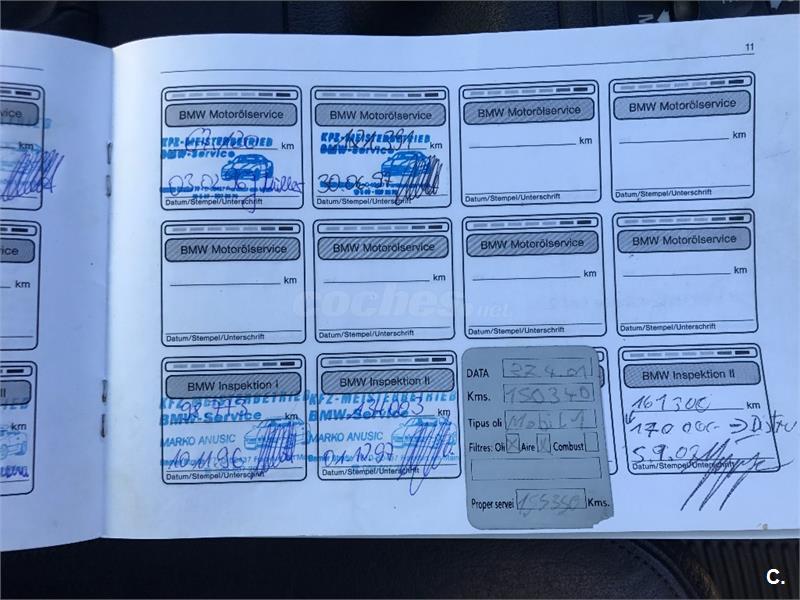 11
vice
BMW Motorölservice
BMW Motorölservice
BMW Motorölservice
BMW Motorölservice
km
km
km
km
KFZ-MEISTERBETRIEB
BMW-Service
KFZ-MEISTERBETRIEB
BMW-Service
30.06.97
Datum/Stempel/Unterschrift
Datum/Stempel/Unterschrift
Datum/Stempel/Unterschrift
Datum/Stempel/Unterschrift
ice
BMW Motorölservice
BMW Motorölservice
BMW Motorölservice
BMW Motorölservice
km
km
km
km
km
coches.net
Datum/Stempel/Unterschrift
Datum/Stempel/Unterschrift
Datum/Stempel/Unterschrift
Datum/Stempel/Unterschrift
II
BMW Inspektion I
BMW Inspektion II
BMW Inspektion II
km
km
km
KFZ-MEISTERBETRIEB
BMW-Service
MARKO ANUSIC
10.11.96
Datum/Stempel/Unterschrift
KFZ-MEISTERBETRIEB
BMW-Service
MARKO ANUSIC
01.12.97
Datum/Stempel/Unterschrift
DATA
Kms. 150340
Tipus oli Mobil 1
Filtres: Oli X Aire X Combust
Proper servei 155340 Kms.
161300
170 000
Datum/Stempel/Unterschrift
C.